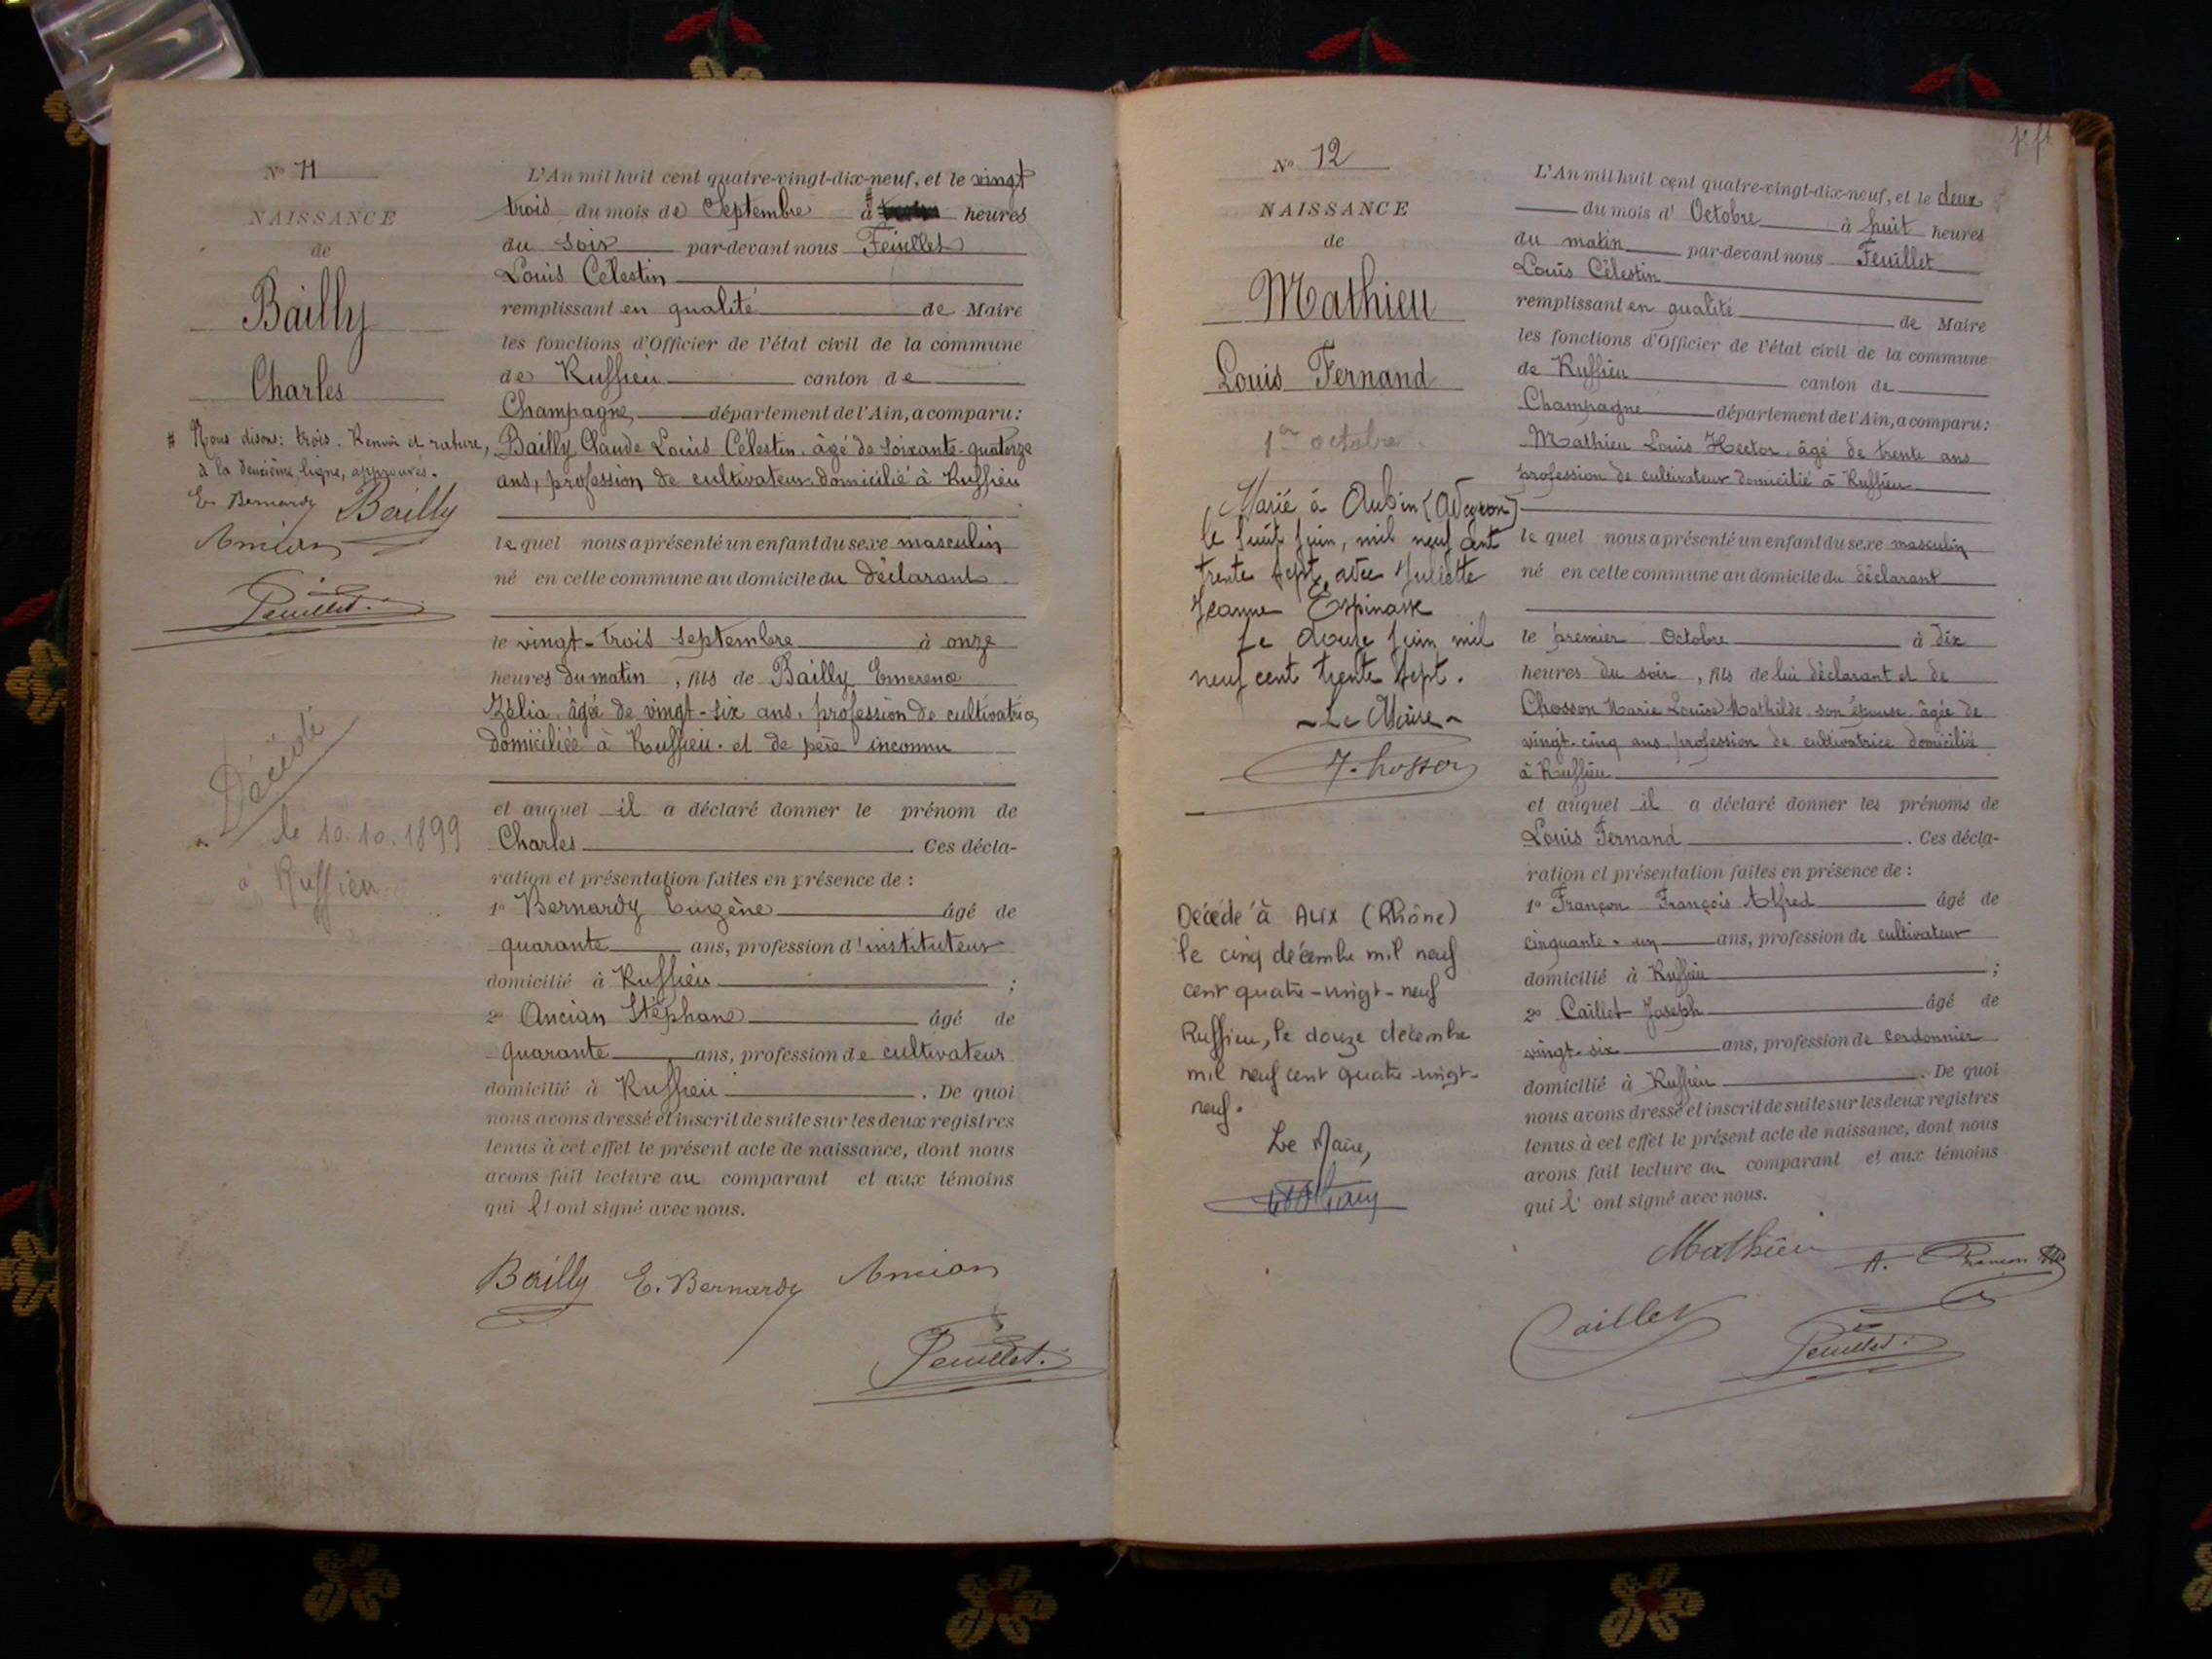 N° 11
NAISSANCE
de
Bailly
Charles
# Nous disons: trois. Renvoi et rature,
à la deuxième ligne, approuvés.
E. Bernardy Bailly
Ancian
Feuillet.
Décédé
le 10.10.1899
à Ruffieu
L'An mil huit cent quatre-vingt-dix-neuf, et le vingt
trois du mois de Septembre à # heures
du soir par-devant nous Feuillet
Louis Célestin
remplissant en qualité de Maire
les fonctions d'Officier de l'état civil de la commune
de Ruffieu canton de
Champagne département de l'Ain, a comparu:
Bailly Claude Louis Célestin, âgé de soixante-quatorze
ans, profession de cultivateur domicilié à Ruffieu
lequel nous a présenté un enfant du sexe masculin
né en cette commune au domicile du déclarant
le vingt-trois septembre à onze
heures du matin, fils de Bailly Emerence
Zélia, âgée de vingt-six ans, profession de cultivatrice,
domiciliée à Ruffieu. et de père inconnu
et auquel il a déclaré donner le prénom de
Charles. Ces décla-
ration et présentation faites en présence de:
1° Bernardy Eugène âgé de
quarante ans, profession d'instituteur
domicilié à Ruffieu;
2° Ancian Stéphane âgé de
quarante ans, profession de cultivateur
domicilié à Ruffieu. De quoi
nous avons dressé et inscrit de suite sur les deux registres
tenus à cet effet le présent acte de naissance, dont nous
avons fait lecture au comparant et aux témoins
qui l'ont signé avec nous.
Bailly E. Bernardy Ancian
Feuillet.
N° 12
NAISSANCE
de
Mathieu
Louis Fernand
1er octobre.
Marié à Aubin (Aveyron)
le huit juin, mil neuf cent
trente sept, avec Juliette
Jeanne Espinasse
Le douze juin mil
neuf cent trente sept.
Le Maire
Décédé à ALIX (Rhône)
le cinq décembre mil neuf
cent quatre-vingt-neuf
Ruffieu, le douze décembre
mil neuf cent quatre-vingt-
neuf.
Le Maire,
L'An mil huit cent quatre-vingt-dix-neuf, et le deux
du mois d'Octobre à huit heures
du matin par-devant nous Feuillet
Louis Célestin
remplissant en qualité de Maire
les fonctions d'Officier de l'état civil de la commune
de Ruffieu canton de
Champagne département de l'Ain, a comparu:
Mathieu Louis Hector, âgé de trente ans
profession de cultivateur domicilié à Ruffieu
lequel nous a présenté un enfant du sexe masculin
né en cette commune au domicile du déclarant
le premier Octobre à dix
heures du soir, fils de lui déclarant et de
Chosson Marie Louise Mathilde, son épouse, âgée de
vingt-cinq ans profession de cultivatrice domiciliée
à Ruffieu
et auquel il a déclaré donner les prénoms de
Louis Fernand. Ces décla-
ration et présentation faites en présence de:
1° Françon François Alfred âgé de
cinquante-un ans, profession de cultivateur
domicilié à Ruffieu;
2° Caillet Joseph âgé de
vingt-six ans, profession de cordonnier
domicilié à Ruffieu. De quoi
nous avons dressé et inscrit de suite sur les deux registres
tenus à cet effet le présent acte de naissance, dont nous
avons fait lecture au comparant et aux témoins
qui l'ont signé avec nous.
Mathieu A. Françon
Caillet Feuillet.